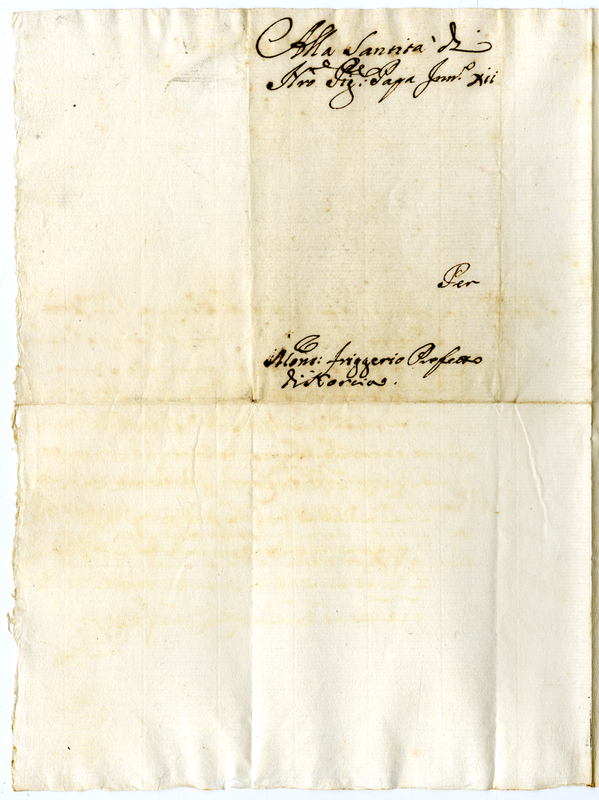 Alla Santità di
Nro Sig.re Papa Inn.o XII
Per
Mons.r friggerio Prefetto
di Norcia.